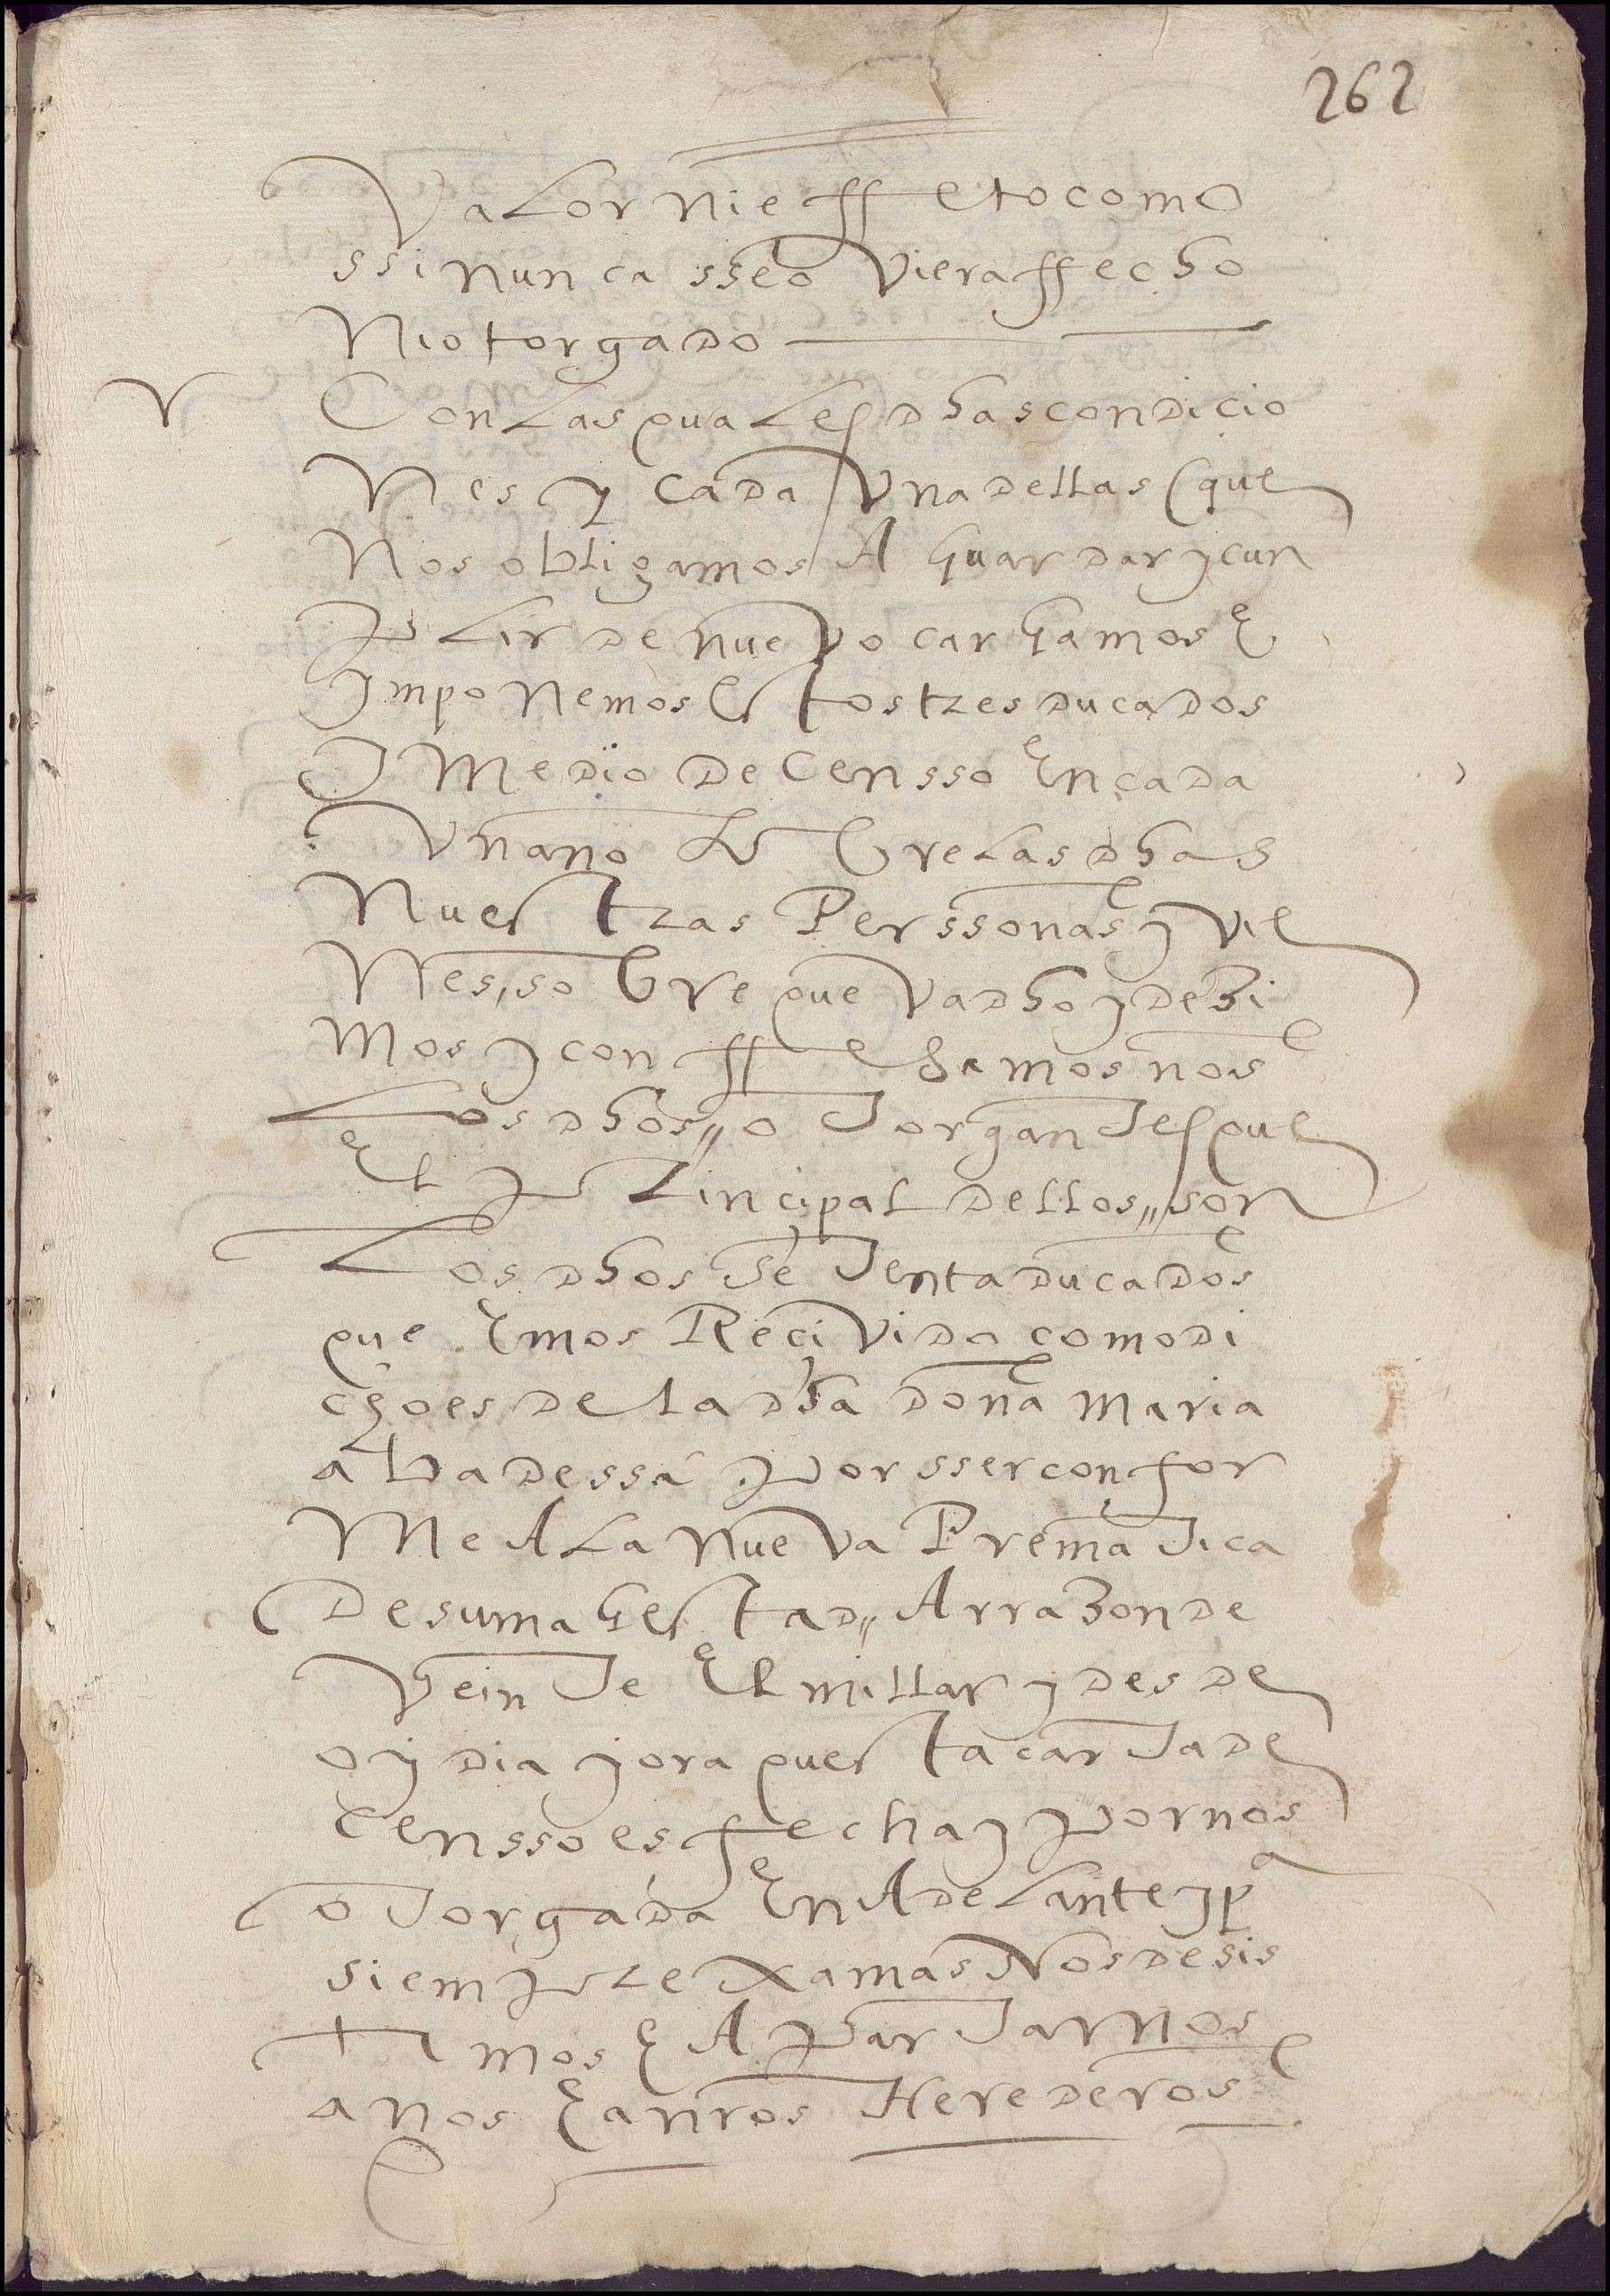 262
Valor ni effetocomo
ssi nunca sseo viera ffecho
Ni otorgado
V Con las quales dhas condicio
Nes y cada Una dellas (que
Nos obligamos A guardar y cun
plir de nuevo cargamos E
Ymponemos Estos tres ducados
Y Medio de Censso En cada
Un ano sobre las dhas
Nuestras Perssonas y vie
Nes, sobre que va dho y debi
mos y conffessamos nos
Los dhos" otorgantes que
El principal dellos" son
Los dhos setenta ducados
que Emos Recivido como di
cho es de la dha dona maria
abadessa por sser confor
Me A la nueva Prematica
De su magestad" A rrazon de
Veinte El millar y desde
oy dia y ora questa carta de
Censso es fecha y por nos
otorgada En Adelante y pa
siempre xamas Nos desis
timos E Apartamos
a nos E a nros Herederos